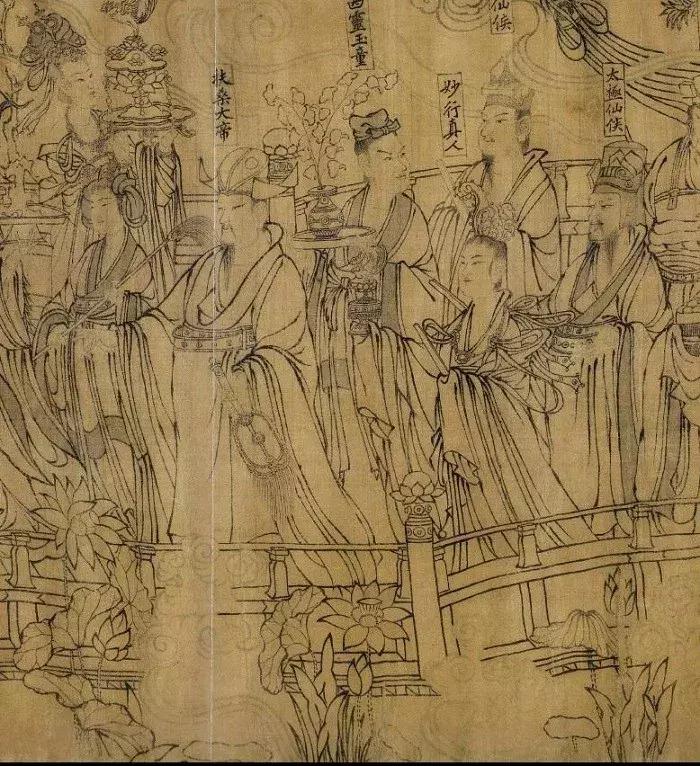 太極仙侯
仙侯
妙行真人
西靈玉童
扶桑大帝